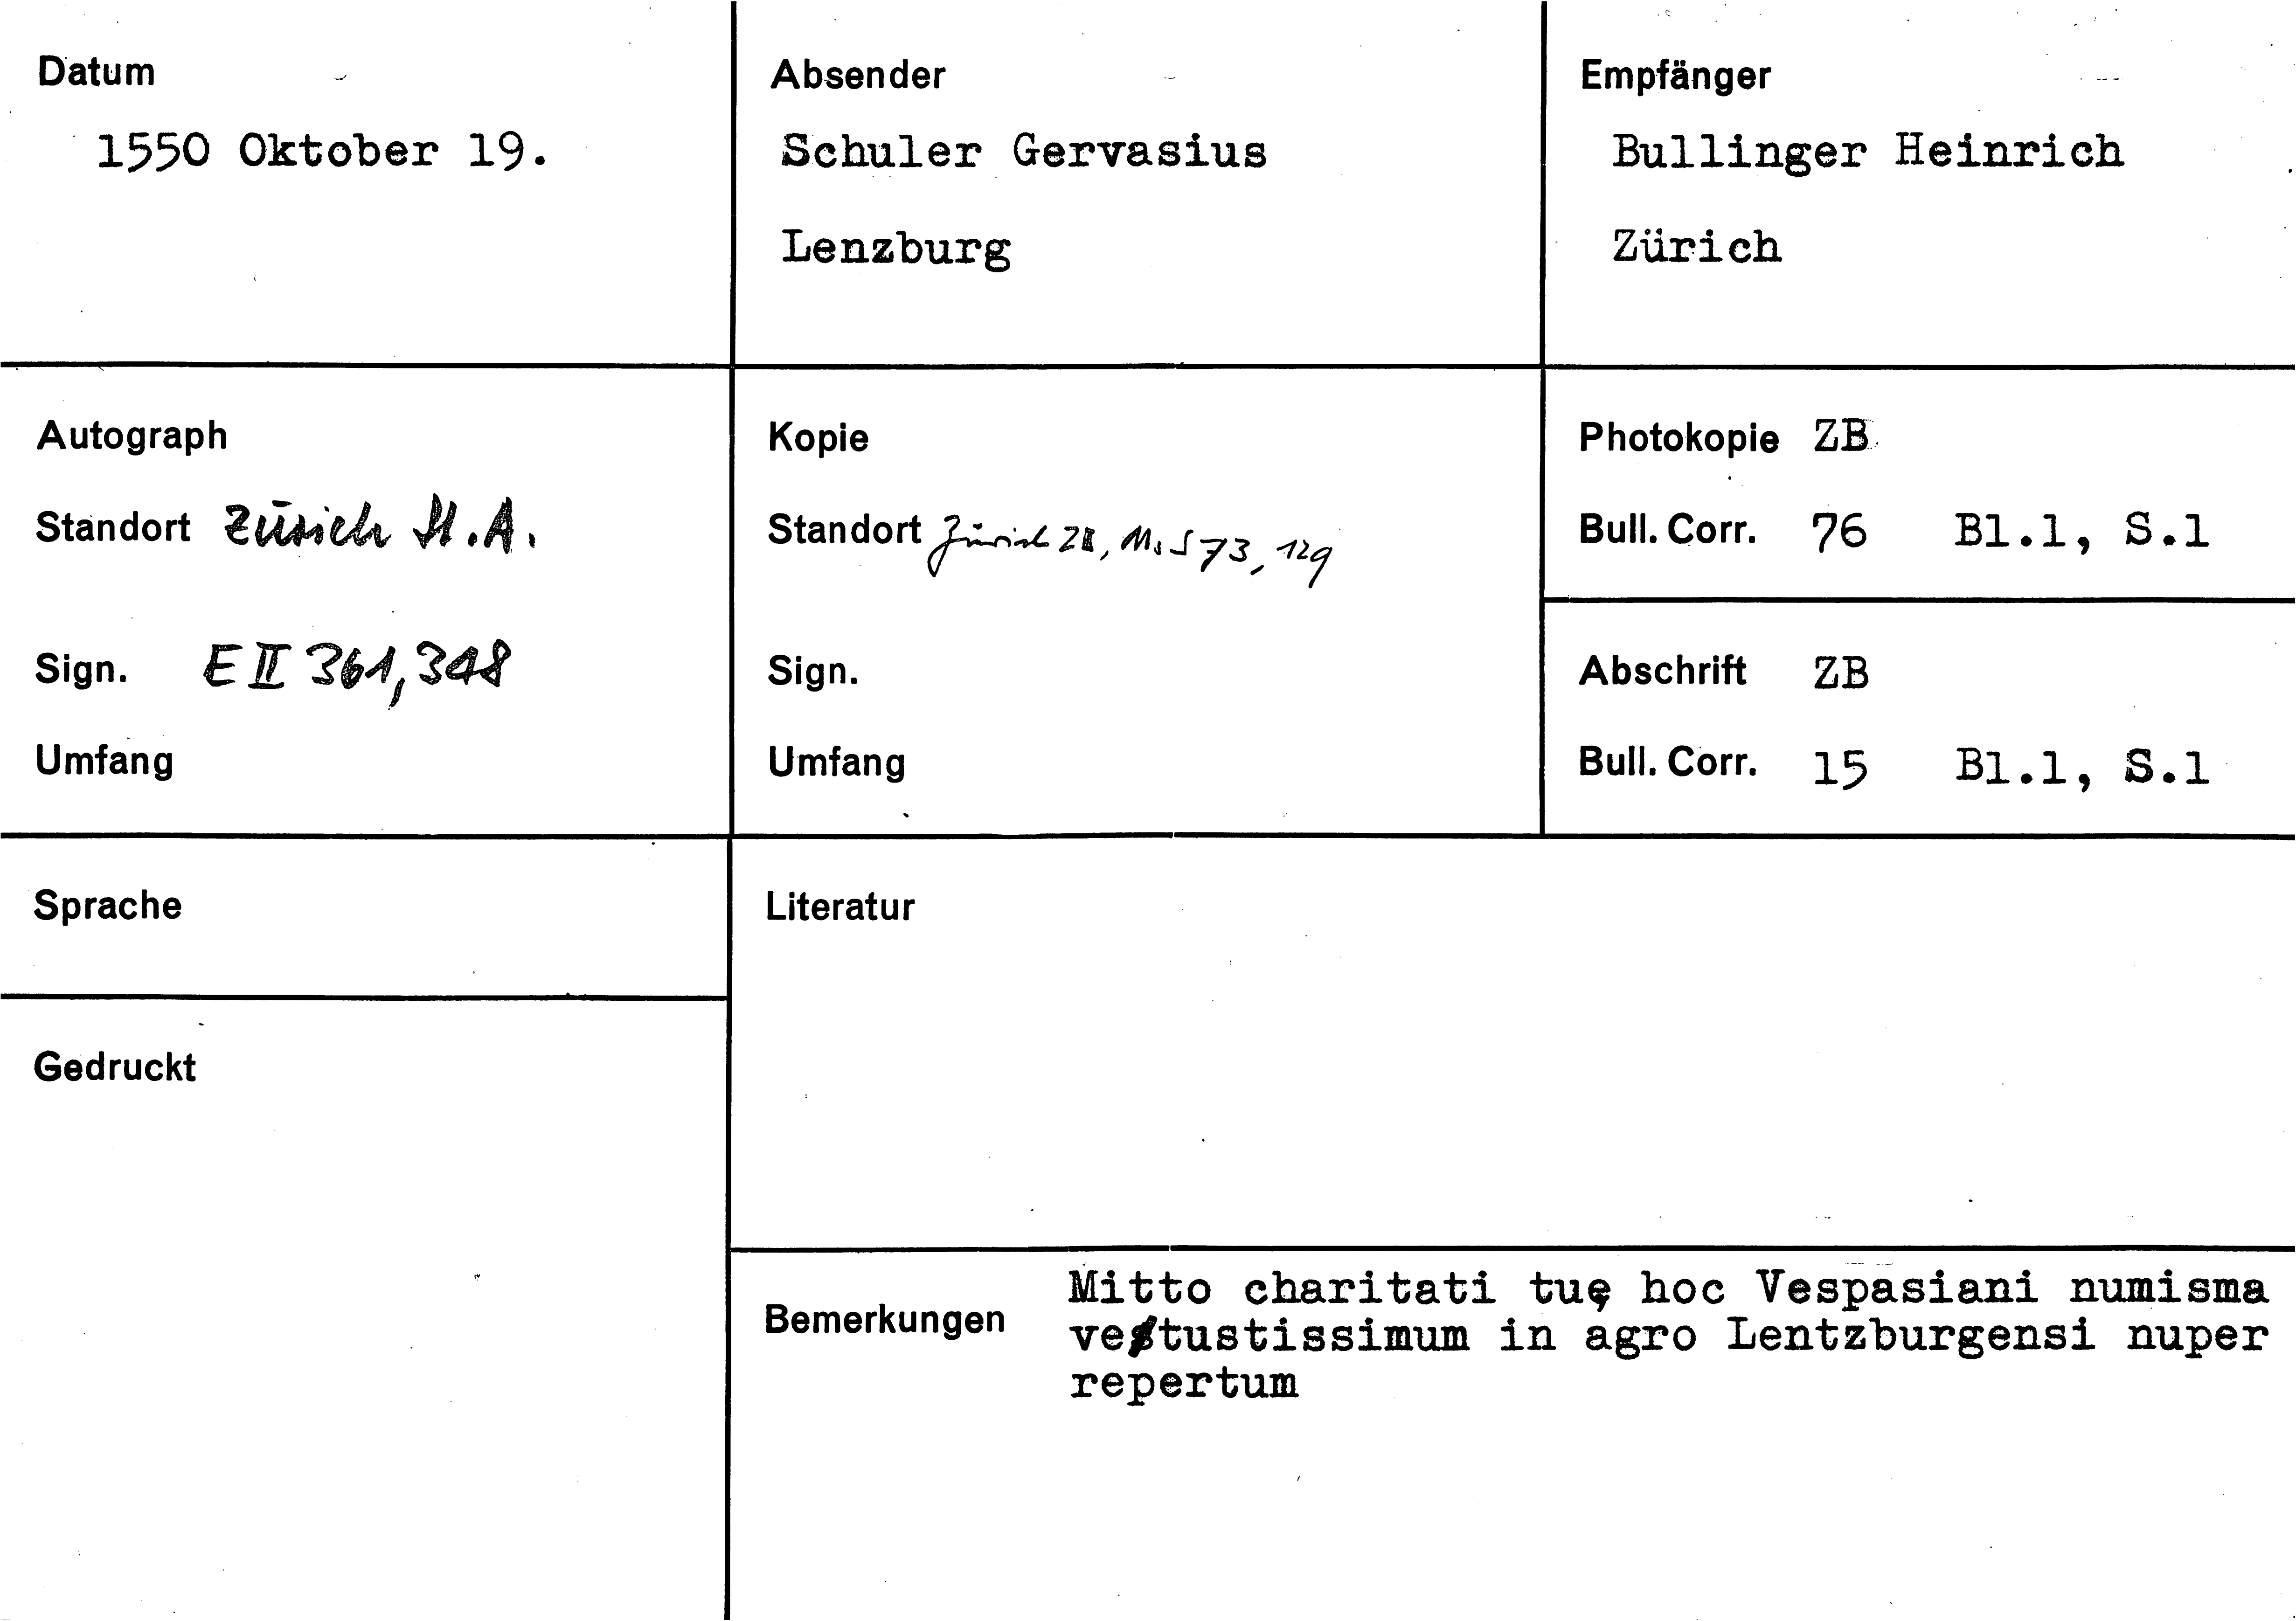 Datum
1550 Oktober 19.
Absender
Schuler Gervasius
Lenzburg
Empfänger
Bullinger Heinrich
Zürich
Autograph
Standort Zürich St.A.
Sign. E II 361,348
Umfang
Kopie
Standort Zürich ZB, Ms S 73, 129
Sign.
Umfang
Photokopie ZB
Bull. Corr. 76 Bl.1, S.1
Abschrift ZB
Bull. Corr. 15 Bl.1, S.1
Sprache
Gedruckt
Literatur
Bemerkungen
Mitto charitati tuę hoc Vespasiani numisma
vetustissimum in agro Lentzburgensi nuper
repertum